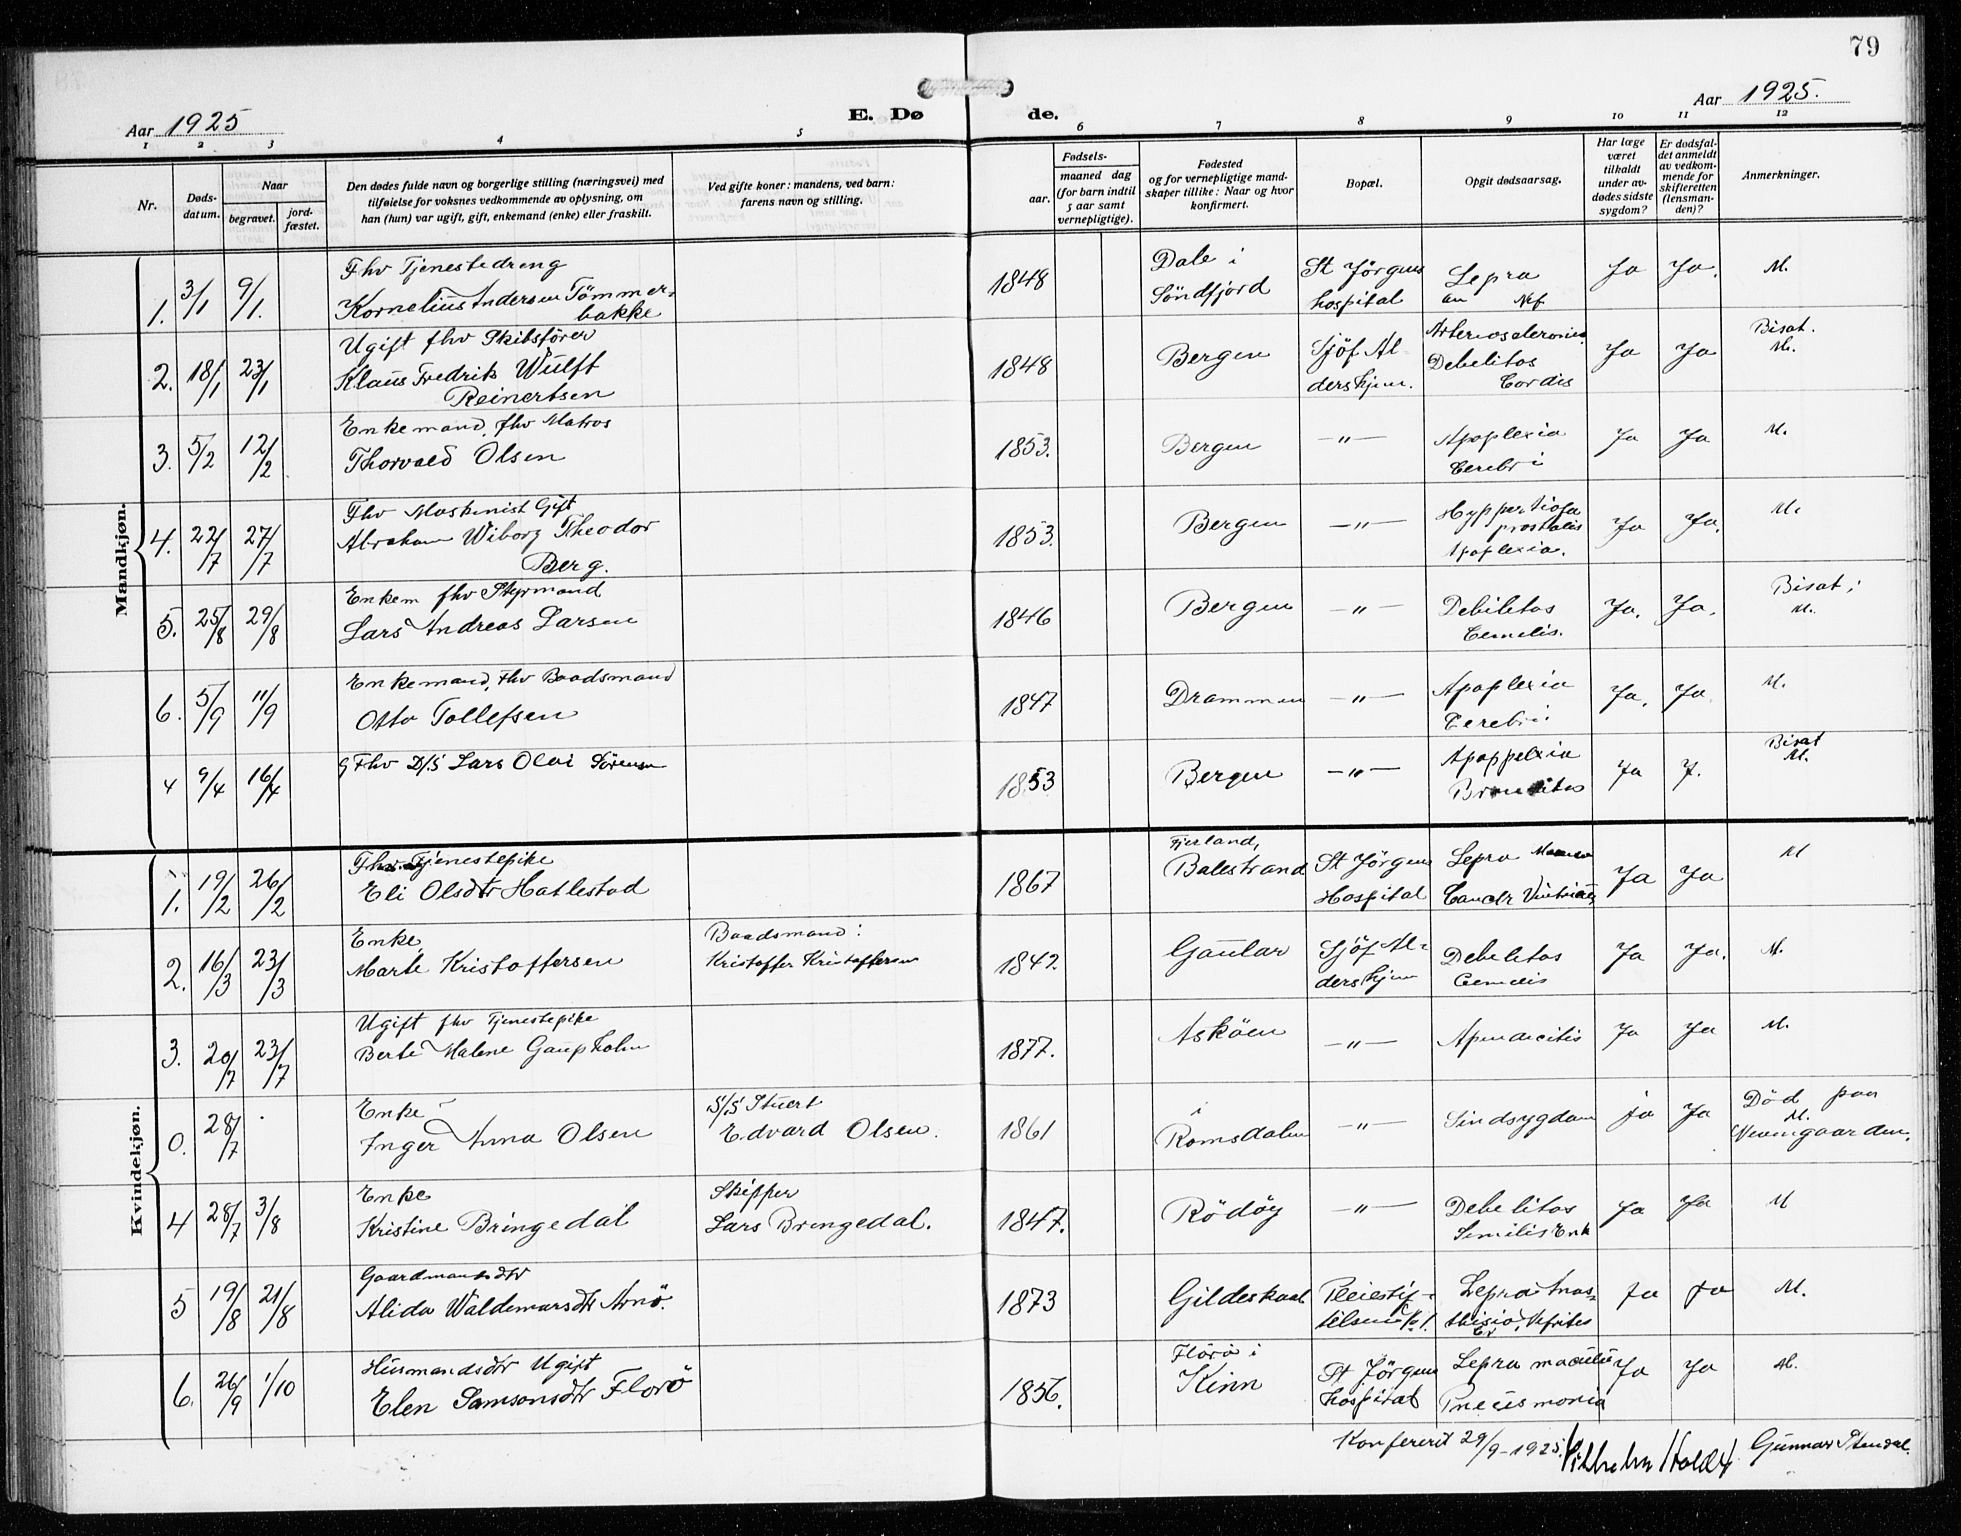 79
Aar 1925
E. Dø de.
Aar 1925.
1 2 3 4 5 6 7 8 9 10 11 12
Nr.
Døds-
datum.
Naar
begravet.
jord-
fæstet.
Den dødes fulde navn og borgerlige stilling (næringsvei) med
tilføielse for voksnes vedkommende av oplysning, om
han (hun) var ugift, gift, enkemand (enke) eller fraskilt.
Ved gifte koner: mandens, ved barn:
farens navn og stilling.
Fødsels-
aar.
maaned dag
(for barn indtil
5 aar samt
vernepligtige).
Fødested
og for vernepligtige mand-
skaper tillike: Naar og hvor
konfirmert.
Bopæl.
Opgit dødsaarsag.
Har læge
været
tilkaldt
under av-
dødes sidste
sygdom?
Er dødsfal-
det anmeldt
av vedkom-
mende for
skifteretten
(lensman-
den)?
Anmerkninger.
Mandkjøn.
Fhv Tjenestedreng
1. 3/1 9/1. Kornelius Andersen Tömmer-
bakke
1848 Dale i
Söndfjord
St Jörgens
hospital
Lepra
an Nef
Ja Ja. M.
Ugift fhv Skibsförer
2. 18/1 23/1 Klaus Fredrik Wulff
Reinertsen
1848 Bergen Sjöf Al-
dershjem.
Debelitas
Cordis
Ja Ja Bisat.
M.
Enkemand, fhv Matros
3. 5/2 12/2 Thorvald Olsen
1853. Bergen —"— Apoplexia
Cerebri
Ja Ja M.
Fhv Maskinist Gift
4. 22/7 27/7 Abraham Wiborg Theodor
Berg.
1853. Bergen —"—
prostatis
Apoplexia.
Ja Ja. M.
Enkem fhv Styrmand
5. 25/8 29/8 Lars Andreas Larsen
1846 Bergen —"— Debilitas
Cemelis.
Ja. Ja. Bisat;
M.
Enkemand, Fhv Baadsmand
6. 5/9 11/9 Otto Tollefsen
1847 Drammen —"— Apoplexia
Cerebri
Ja. Ja. M.
4 9/4 16/4 G Fhv D/S Lars Olai Sörensen
1853 Bergen —"— Apoppelxia
Ja J. Bisat
M.
Kvindekjøn.
Fhv. Tjenestepike
1. 19/2 26/2 Eli Olsdtr Hatlestad
1867 Fjerland,
Balestrand
St Jörgens
Hospital
Lepra
Ja Ja M
Enke,
2. 16/3 23/3 Marte Kristoffersen
Baadsmand:
Kristoffer Kristoffersen
1842. Gaular Sjöf Al-
dershjem
Debelitas
Cemelis
Ja Ja. M.
Ugift fhv Tjenestepike
3. 20/7 23/7 Berte Malene Gaupholm
1877. Asköen —"— Apendicitis Ja Ja M.
Enke
0. 28/7 Inger Anna Olsen
S/S Stuert
Edvard Olsen.
1861 i
Romsdalen —"— Sindsygdom ja Ja Död paa
M.
Nevengaarden.
Enke
4 28/7 3/8 Kristine Bringedal
Skipper
Lars Bringedal.
1847. Rödöy —"— Debelitas
Semilis Enk
Ja Ja M
Gaardmandsdtr
5 19/8 21/8 Alida Waldemarsdtr Arnö.
1873 Gildeskaal Pleiestif-
telsen No 1.
Lepra Anas-
thisia, Nefrites
Ja Ja M.
Husmandsdtr Ugift
6. 26/9 1/10 Elen Samsonsdtr Florö
1856. Florö i
Kinn
St Jörgen
hospital
Lepra maculu
Pneusmonia
Ja Ja M.
Konfererit 29/9-1925. Vilhelm Holdt Gunnar Stendal.